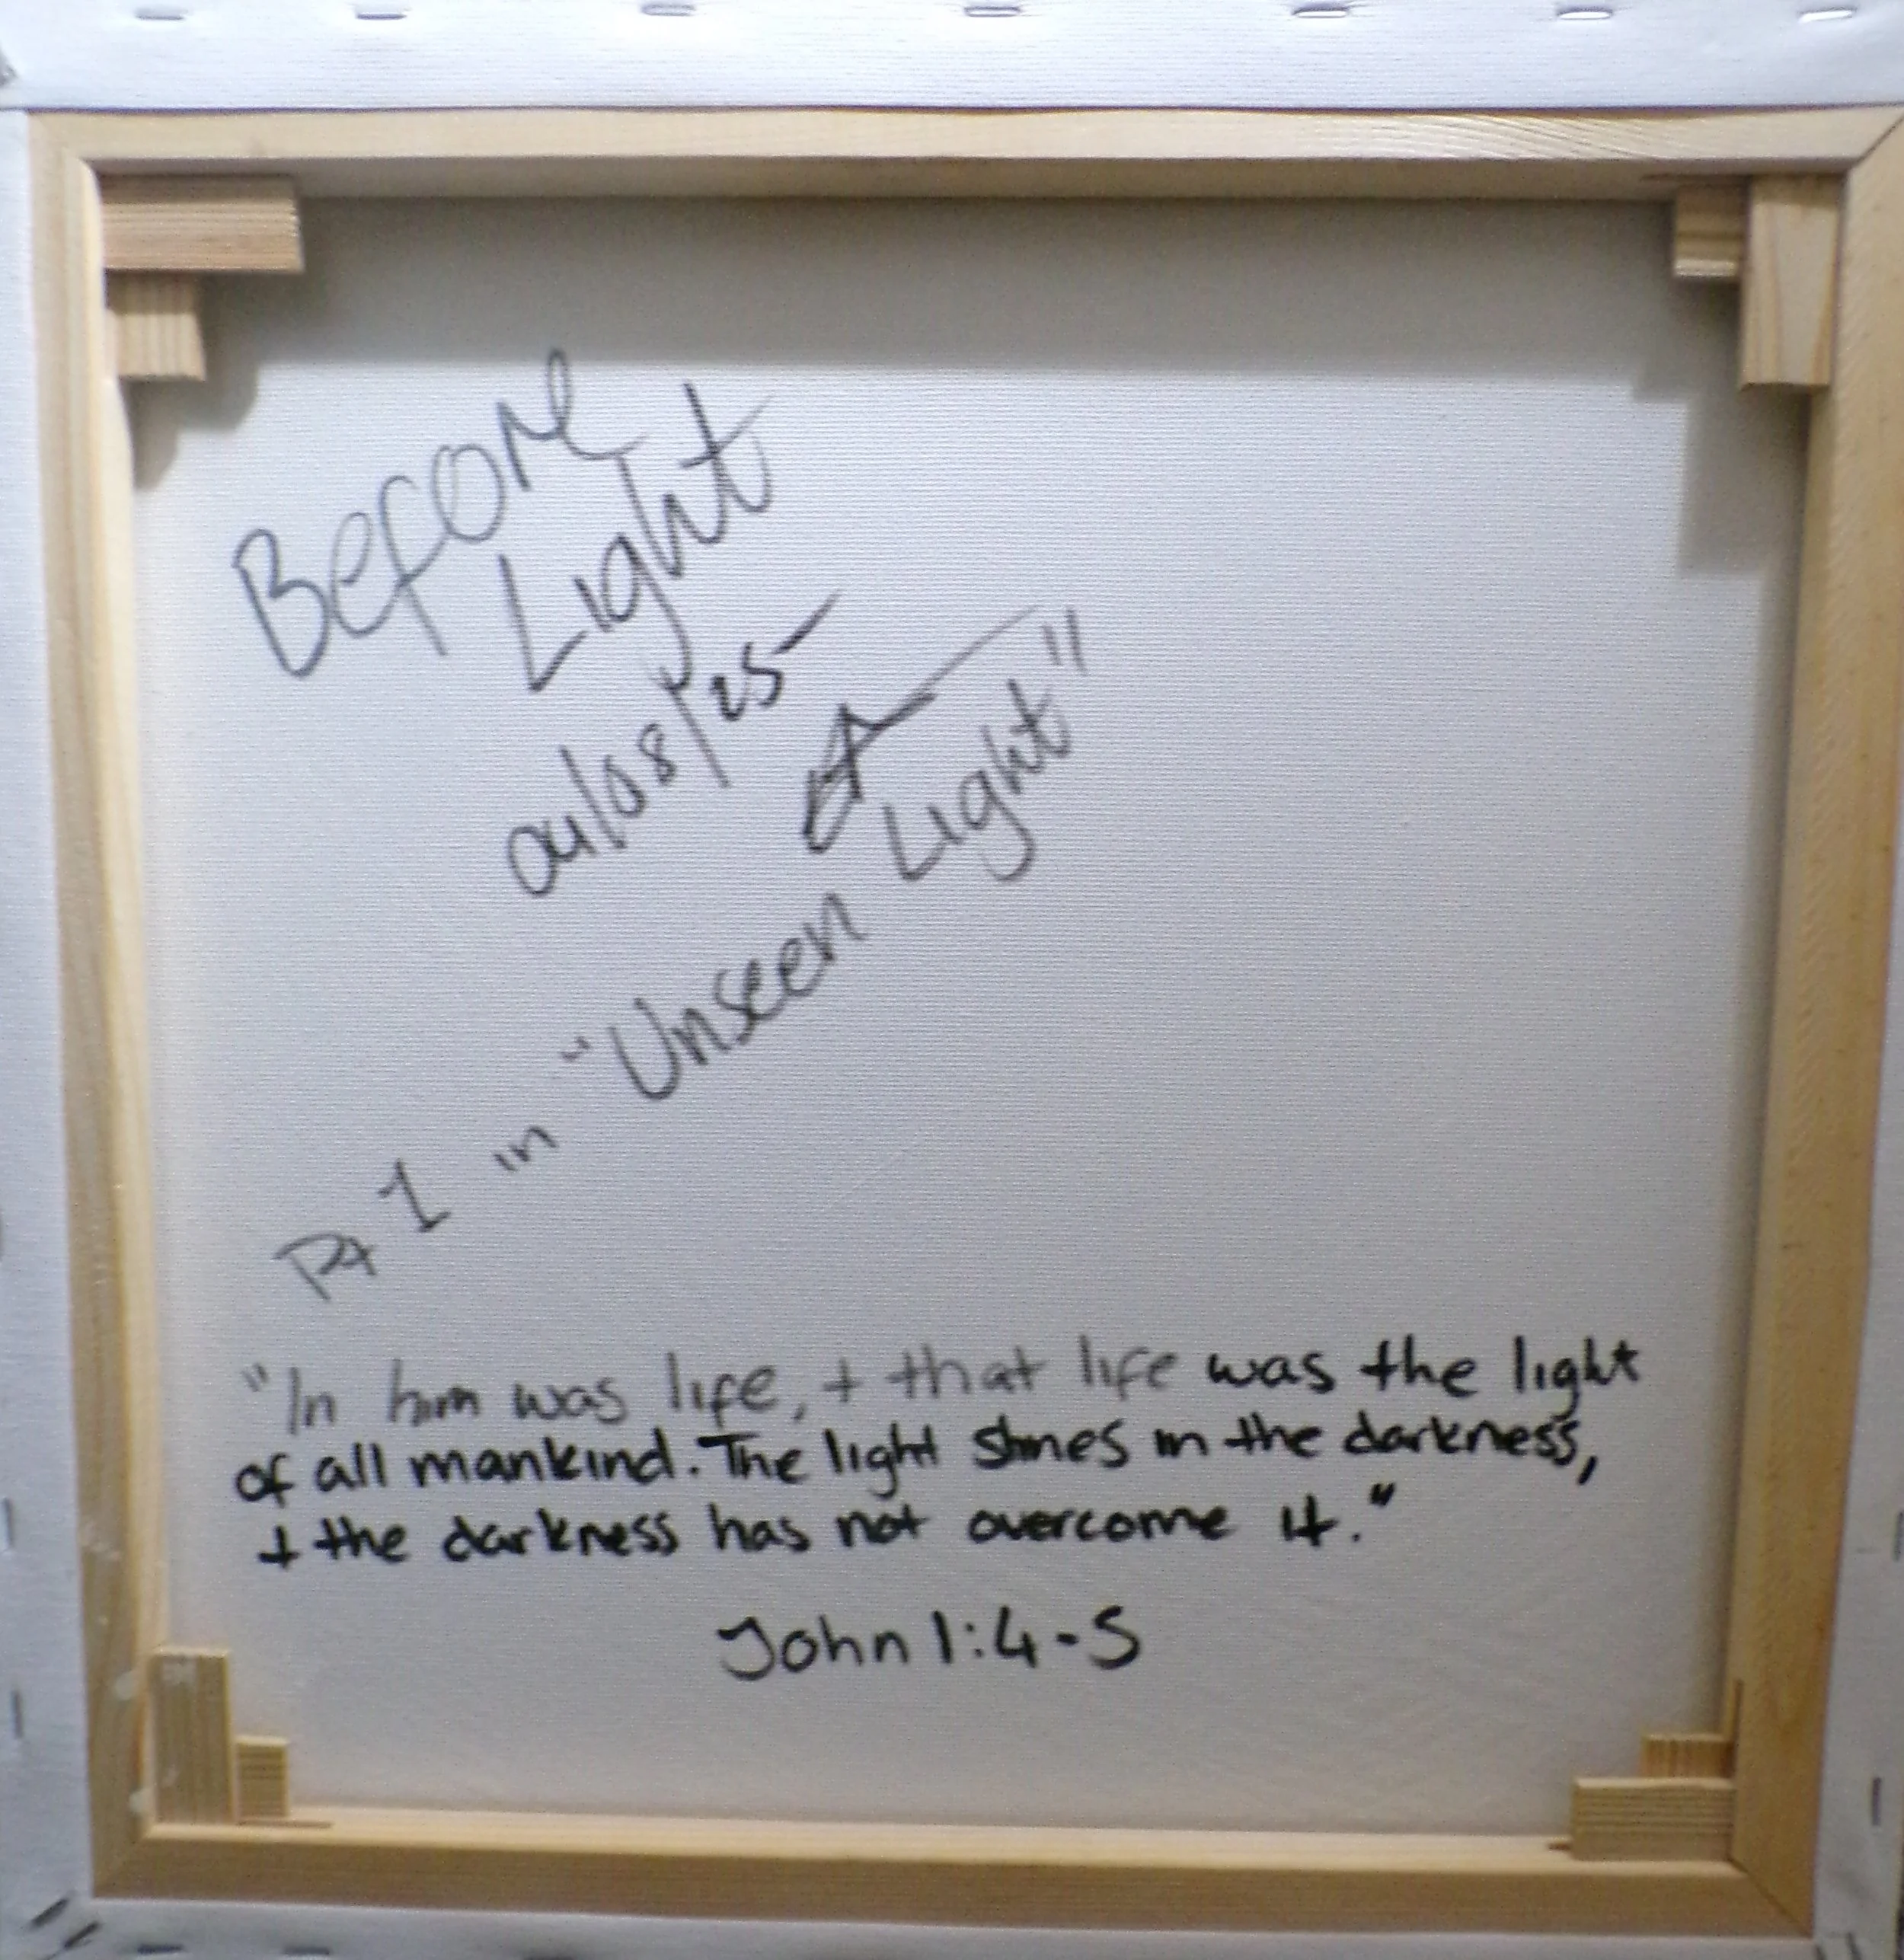 Before
Light
04/08/25
Pt 1 in "Unseen Light"
"In him was life, + that life was the light
of all mankind. The light shines in the darkness,
+ the darkness has not overcome it."
John 1:4-5